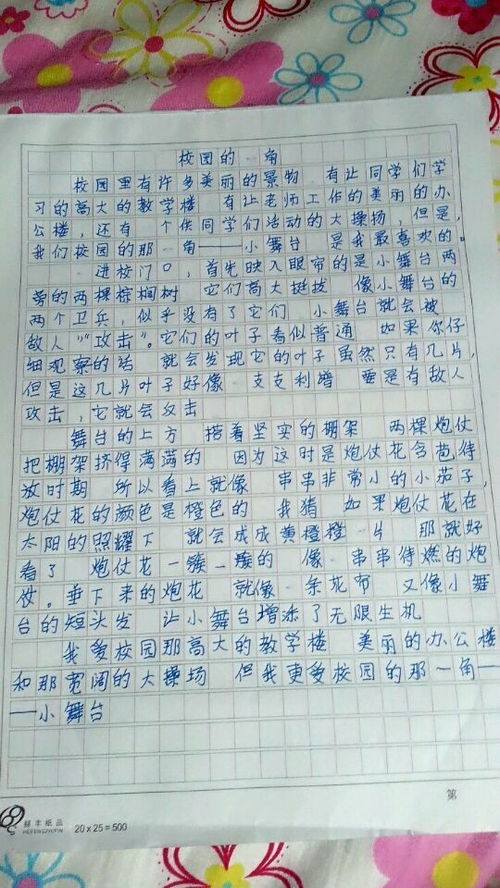 校园的一角
校园里有许多美丽的景物 有让同学们学
习的高大的教学楼 有让老师工作的美丽的办
公楼，还有一个供同学们活动的大操场，但是，
我们校园的那一角——小舞台 是我最喜欢的。
一进校门口，首先映入眼帘的是小舞台两
旁的两棵棕榈树 它们高大挺拔 像小舞台的
两个卫兵，似乎没有了它们 小舞台就会被
敌人“攻击”。它们的叶子看似普通 如果你仔
细观察的话 就会发现它的叶子虽然只有几片，
但是这几片叶子好像一支支利 要是有敌人
攻击，它就会反击
舞台的上方 搭着坚实的棚架 两棵炮仗
把棚架挤得满满的 因为这时是炮仗花含苞待
放时期 所以看上就像一串串非常小的小茄子，
炮仗花的颜色是橙色的 我猜 如果炮仗花在
太阳的照耀下 就会成成黄橙橙一片 那就好
看了 炮仗花一簇一簇的 像一串串待燃的炮
仗。垂下来的炮花 就像一条花布 又像小舞
台的短头发 让小舞台增添了无限生机
我爱校园那高大的教学楼 美丽的办公楼
和那宽阔的大操场 但我更爱校园的那一角—
—小舞台
第
赫丰纸品
HEFENGZHIPIN
20×25=500